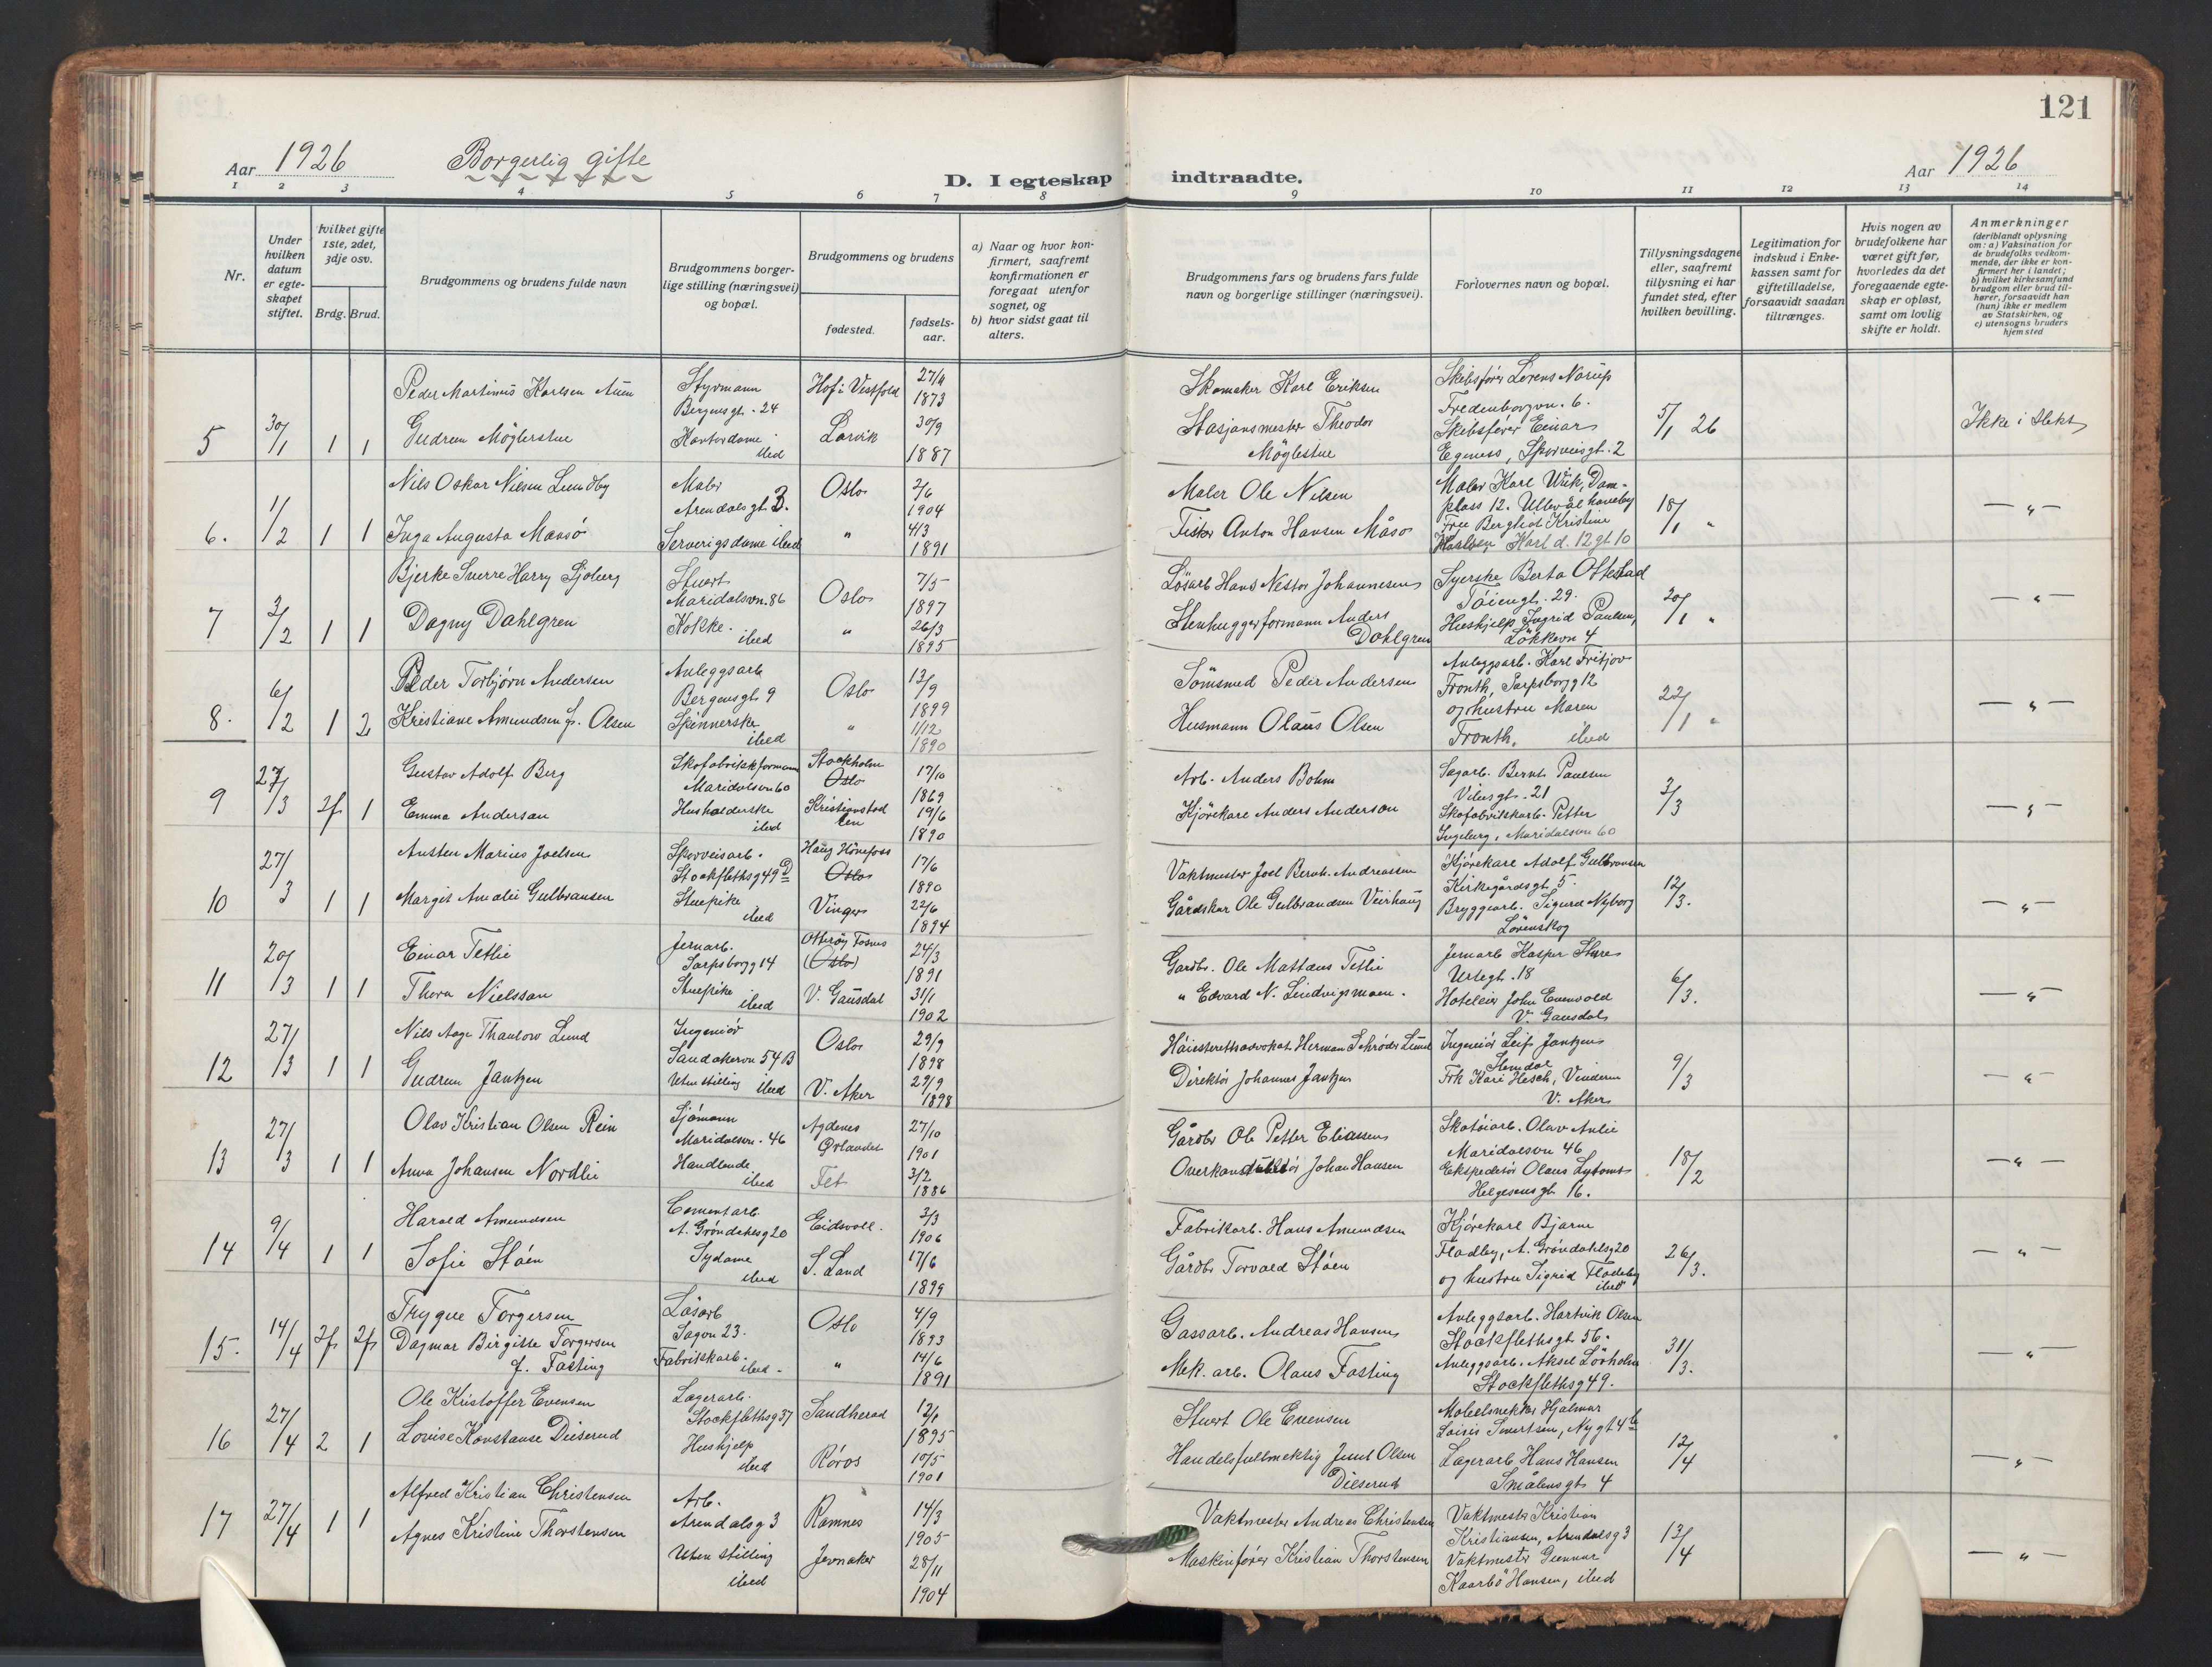 121
Aar 1926
Borgerlig gifte
D. I egteskap
indtraadte.
Aar 1926
1 2 3 4 5 6 7 8 9 10 11 12 13 14
Nr.
Under hvilken datum er egteskapet stiftet.
hvilket gifte 1ste, 2det, 3dje osv.
Brdg. Brud.
Brudgommens og brudens fulde navn
Brudgommens borgerlige stilling (næringsvei) og bopæl.
Brudgommens og brudens
fødested.
fødselsaar.
a) Naar og hvor konfirmert, saafremt konfirmationen er foregaat utenfor sognet, og
b) hvor sidst gaat til alters.
Brudgommens fars og brudens fars fulde navn og borgerlige stillinger (næringsvei).
Forlovernes navn og bopæl.
Tillysningsdagene eller, saafremt tillysning ei har fundet sted, efter hvilken bevilling.
Legitimation for indskud i Enkekassen samt for giftetilladelse, forsaavidt saadan tiltrænges.
Hvis nogen av brudefolkene har været gift før, hvorledes da det foregaaende egteskap er opløst, samt om lovlig skifte er holdt.
Anmerkninger
(deriblandt oplysning om: a) Vaksination for de brudefolks vedkommende, der ikke er konfirmert her i landet; b) hvilket kirkesamfund brudgom eller brud tilhører, forsaavidt han (hun) ikke er medlem av Statskirken, og c) utensogns bruders hjemsted
5 30/1 1 1
Peder Martinius Karlsen
Gudrun Møglestue
Styrmann
Bergensgt. 24
Kontordame
ibed
Hof i Vestfold
Larvik
27/4 1873
30/9 1887
Skomaker Karl Eriksen
Stasjonsmester Theodor
Møglestue
Skibsfører Lorens Norup
Fredenborgvn. 6.
Skibsfører Einar
Egeness, Sporveisgt. 2
5/1 26
Ikke i slekt
6. 1/2 1 1
Nils Oskar Nilsen Lundby
Inga Augusta Maasö
Maler
Arendalsgt 3.
Serverigsdame ibed
Oslo
"
2/6 1904
4/3 1891
Maler Ole Nilsen
Fisker Anton Hansen Måsø
Maler Karl Wiik, Dam-
plass 12. Ullevål haveby
Fru Bergliot Kristine
Karl d. 12 gt 10
18/1 "
— " —
7 3/2 1 1
Bjerke Sverre Harry Sjøberg
Dagny Dahlgren
Stuert
Maridalsvn. 86
Kokke.
ibed
Oslo
"
7/5 1897
26/3 1895
Løsarb Hans Nestor Johannesen
Stenhuggerformann Anders
Dahlgren
Syerske Berta Oftestad
Tøiengt. 29.
Hushjelp Ingrid Paulsen,
Løkkevn 4
20/1 "
— " —
8. 6/2 1 2
Peder Torbjørn Andersen
Kristiane Amundsen f. Olsen
Anleggsarb
Bergensgt. 9
Spinnerske
ibed
Oslo
"
13/9 1899
1/12 1890
Sömsmed Peder Andersen
Husmann Olaus Olsen
Anleggsarb. Karl Fritjov
Fronth, Sarpsborgg 12
og hustru Maren
Fronth, ibed
22/1 "
— " —
9 27/3 2f 1
Gustav Adolf Berg
Emma Anderson
Skofabrikkformann
Maridalsvn 60
Husholderske
ibed
Stockholm
Oslo
Kristianstad
len
17/10 1869
19/6 1890
Arb. Anders Bohm
Kjörekare Anders Anderson
Sagarb. Bernt Paulsen
Vibesgt. 21
Skofabrikkarb. Petter
Ingeberg, Maridalsvn 60
3/3
— " —
10 27/3 1 1
Austen Marius Joelsen
Margit Amalie Gulbransen
Sporveisarb.
Stockflethsg 49 D
Stuepike
ibed
Haug Hönefoss
Oslo
Vinger
17/6 1890
22/6 1894
Vaktmester Joel Bernh. Andreassen
Gårdskar Ole Gulbrandsen Veirhaug
Kjørekarl Adolf Gulbransen
Kirkegårdsgt 5.
Bryggearb. Sigurd Nyborg
Lørenskog
12/3.
— " —
11 20/3 1 1
Einar Tetlie
Thora Nielssan
Jernarb.
Sarpsborgg 14
Stuepike
ibed
Otterøy Fosnes
(Oslo)
V. Gausdal
24/3 1891
31/1 1902
Gardbr. Ole Mattæus Tetlie
" Edvard N. Lindvigsmoen.
Jernarb Kasper Stare
Urtegt. 18
Hoteleier John Evenvold
V. Gausdal
6/3.
— " —
12 27/3 1 1
Nils Aage Thaulow Lund
Gudrun Jantzen
Ingeniør
Sandakervn 54 B
Uten stilling ibed
Oslo
V. Aker
29/9 1898
29/9 1898
Høiesterettsadvokat Herman Schrøder Lund
Direktør Johannes Jantzen
Ingeniør Leif Jantzen
Slemdal
Frk Kari Hesch, Vinderen
V. Aker
9/3
— " —
13 27/3 1 1
Olav Kristian Olsen Rein
Anna Johansen Nordlie
Sjømann
Maridalsvn. 46
Handlende
ibed
Agdenes
Ørlandet
Fet
27/10 1901
3/2 1886
Gårdbr Ole Petter Eliassen
Overkonduktør Johan Hansen
Skotøiarb. Olav Aulie
Maridalsvn 46
Ekspeditør Olaus
Helgesensgt. 16.
18/2
— " —
14 9/4 1 1
Harald Amundsen
Sofie Støen
Cementarb.
A. Grøndahlsg 20
Sydame
ibed
Eidsvoll.
S. Land
3/3 1906
17/6 1899
Fabrikkarb. Hans Amundsen
Gårdbr Torvald Støen
Kjørekarl Bjarne
Fladby, A. Grøndahlsg 20
og hustru Sigrid Fladeby
ibed
26/3.
— " —
15. 14/4 2f 2f
Trygve Torgersen
Dagmar Birgitte Torgersen
f. Fasting
Løsarb
Sagvn 23.
Fabrikkarb.
ibed.
Oslo
"
4/9 1893
14/6 1891
Gassarb. Andreas Hansen
Mek. arb. Olaus Fasting
Anleggsarb. Hartvik Olsen
Stockflethsgt 56.
Anleggsarb. Aksel Løvholm
Stockflethsg 49.
31/3.
— " —
16 27/4 2 1
Ole Kristoffer Evensen
Lovise Konstanse Dieserud
Lagerarb.
Stockflethsg 37
Hushjelp
ibed
Sandherad
Røros
12/1 1895
10/5 1901
Stuert Ole Evensen
Handelsfullmektig Juul Olsen
Dieserud
Møbelsnekker Hjalmar
Sivertsen, Nygt 4 b
Lagerarb Hans Hansen
Smålensgt 4
12/4
— " —
17 27/4 1 1
Alfred Kristian Christensen
Agnes Kristine Thorstensen
Arb.
Arendalsg 3
Uten stilling
ibed
Ramnes
Jevnaker
14/3 1905
28/11 1904
Vaktmester Andreas Christensen
Maskinfører Kristian Thorstensen
Vaktmester Kristian
Kristiansen, Arendalsg 3
Vaktmester Gunnar
Kaarbø Hansen, ibed
13/4
— " —